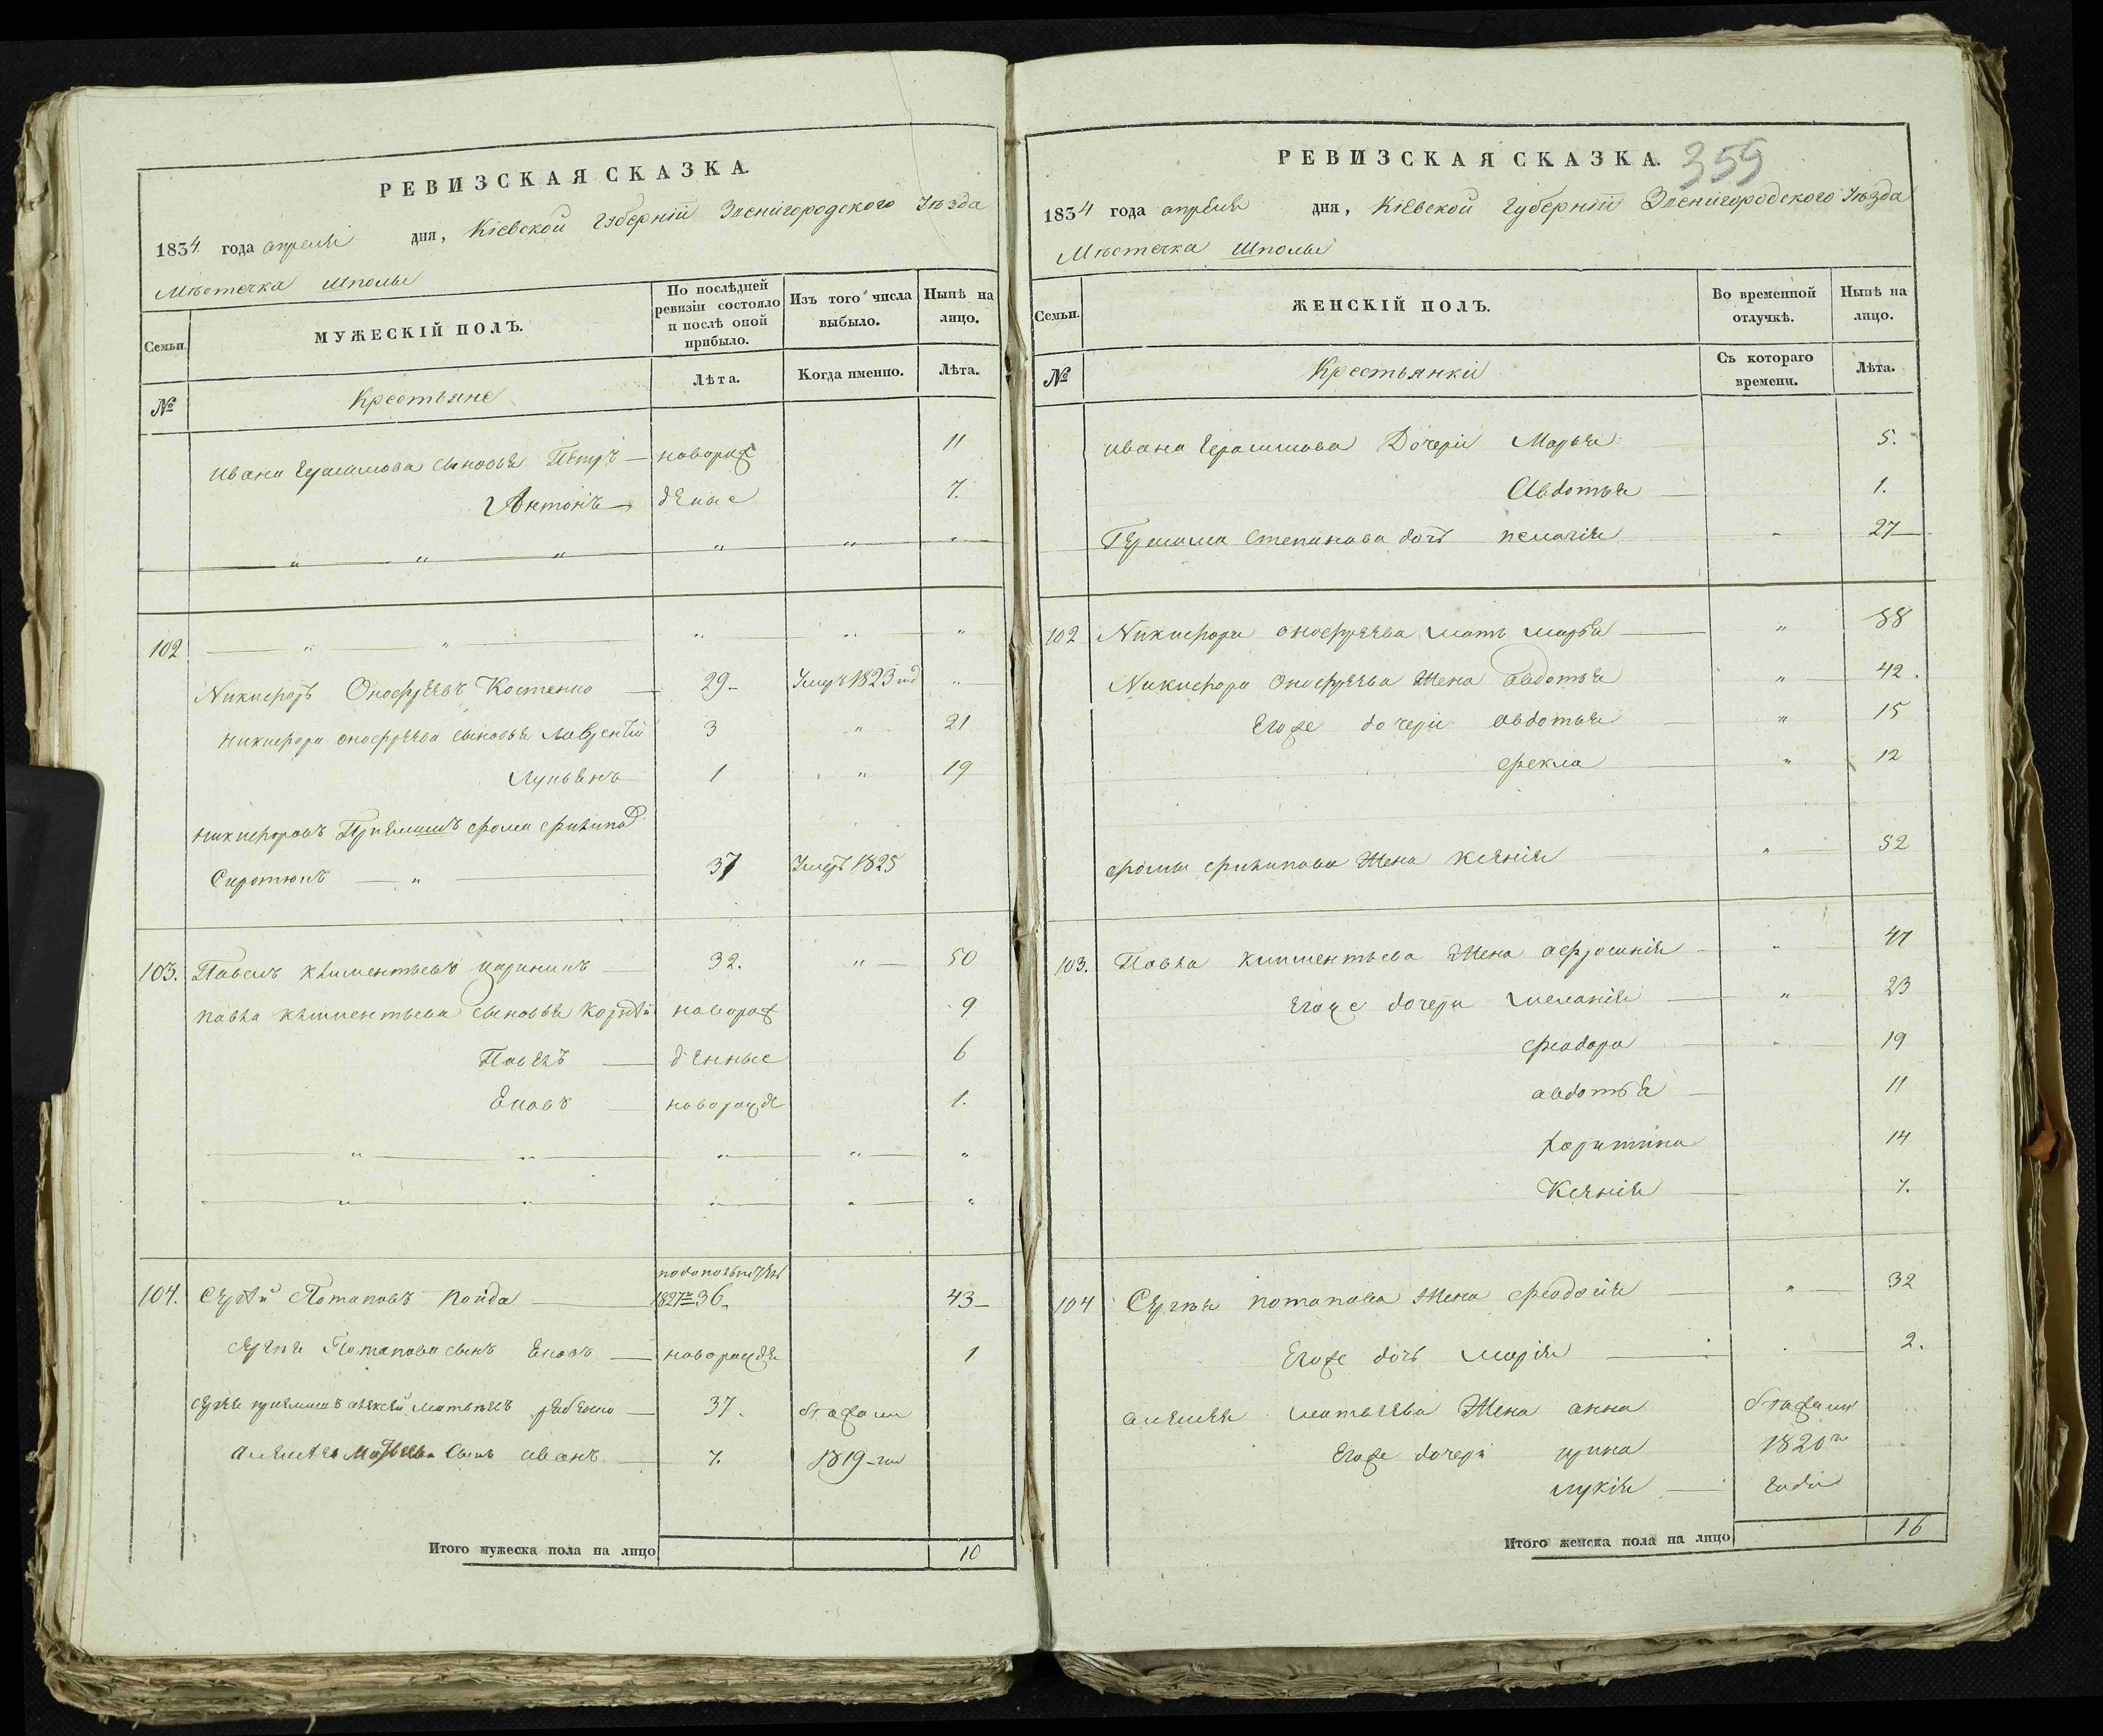 РЕВИЗСКАЯ СКАЗКА.
1834 года апреля дня, Кіевской Губерніи Звенигородского Уѣзда
Мѣстечка Шполы
Семьи.
МУЖЕСКІЙ ПОЛЪ.
По послѣдней ревизіи состояло и послѣ оной прибыло.
Изъ того числа выбыло.
Нынѣ на лицо.
№
Крестьяне
Лѣта.
Когда именно.
Лѣта.
Ивана Герасимова сыновья Петръ — новорож 11
Антонъ — деные 7.
" " " " " "
102 " " " " "
Никифоръ Онофрѣевъ Костенко 29 Умеръ 1823 год "
Никифора онофрѣева сыновья Лаврентій 3 " 21
Лукьянъ 1 " 19
Никифоровъ Пріемышъ фома филипов
Сиротюкъ — " 37 Умеръ 1825
103. Павелъ климентьевъ 32. " 50
Павла климентьева сыновья Корнѣй новорож 9
Павелъ денные 6
Ековъ новорожде 1.
" " " " "
" " " " "
104. Сергѣй Потаповъ Пойда 1827 36 43
Сергѣя Потапова сынъ Ековъ — новорожде 1
Сергѣя пріемышъ алексѣй матвѣевъ рябенко 37.
алексѣя Матвѣева Сынъ иванъ 7. 1819
Итого мужеска пола на лицо 10
РЕВИЗСКАЯ СКАЗКА. 359
1834 года апреля дня, Кіевской Губерніи Звенигородского Уѣзда
Мѣстечка Шполы
Семьи.
ЖЕНСКІЙ ПОЛЪ.
Во временной отлучкѣ.
Нынѣ на лицо.
№
Крестьянки
Съ котораго времени.
Лѣта.
Ивана Герасимова Дочери Марья 5.
Авдотья 1.
Герасима Степанова дочь пелагія 27
102 Никифора онофрѣева мать марья " 88
Никифора Онофрѣева Жена авдотья " 42.
Егоже дочери авдотья " 15
фекла " 12
фомы филипова Жена ксенія " 52
103. Павла климентьева Жена афросинія " 47
Егоже дочери меланія " 23
феодора " 19
авдотья 11
харитина 14
Ксенія 7.
104 Сергѣя потапова Жена феодосія " 32
Егоже дочь марія 2.
алексѣя матвѣева Жена анна
Егоже дочери ирина 1820
лукія года
Итого женска пола на лицо 16